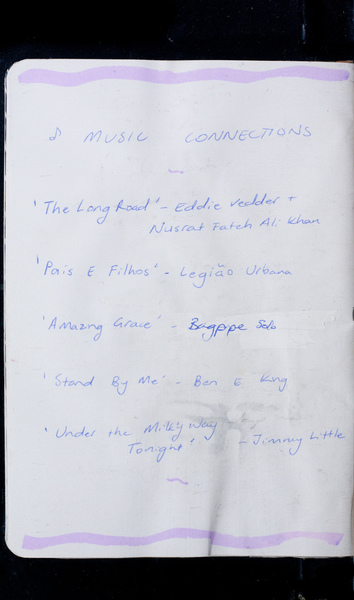 ♪ MUSIC CONNECTIONS
~
'The Long Road' - Eddie Vedder +
Nusrat Fateh Ali Khan
'Pais E Filhos' - Legião Urbana
'Amazing Grace' - Bagpipe Solo
'Stand By Me' - Ben E King
'Under the Milky Way
Tonight' - Jimmy Little
~